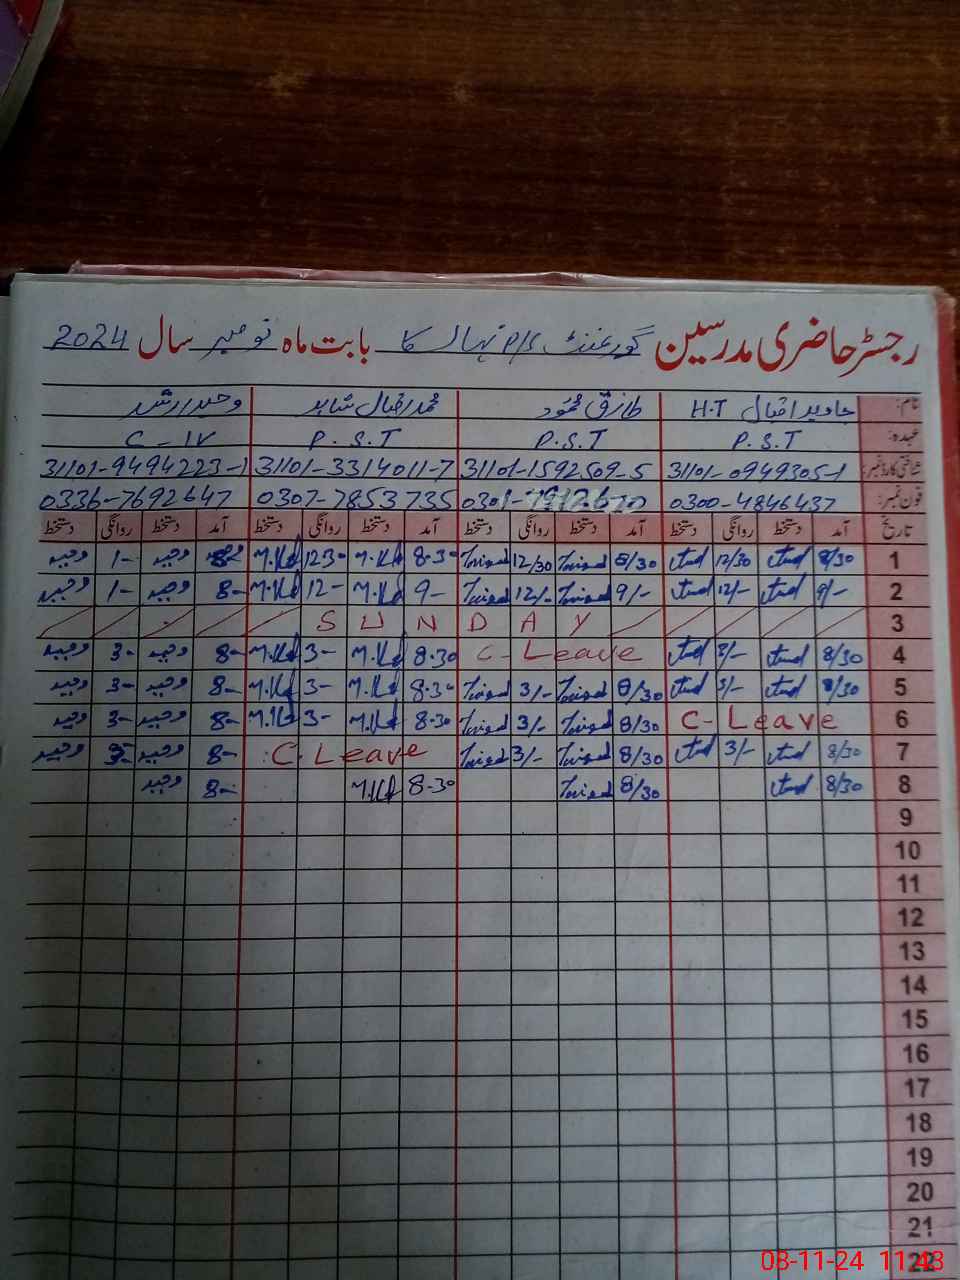 رجسٹر حاضری مدرسین گورنمنٹ P/S نہال کا بابت ماہ نومبر سال 2024
نام: جاوید اقبال H.T طارق محمود محمد اقبال شاہد وحید ارشد
عہدہ: P.S.T P.S.T P.S.T C-IV
شناختی کارڈ نمبر: 31101-0949305-1 31101-1592509-5 31101-3314011-7 31101-9494223-1
فون نمبر: 0300-4846437 0307-7853735 0336-7692647
تاریخ آمد دستخط روانگی دستخط آمد دستخط روانگی دستخط آمد دستخط روانگی دستخط آمد دستخط روانگی دستخط
1 8/30 12/30 8/30 12/30 8-30 M.Kd 12-30 M.Kd 8- وحید 1- وحید
2 9/- 12/- 9/- 12/- 9- M.Kd 12- M.Kd 8- وحید 1- وحید
3 SUNDAY
4 8/30 3/- C-Leave 8-30 M.Kd 3- M.Kd 8- وحید 3- وحید
5 8/30 3/- 8/30 3/- 8-30 M.Kd 3- M.Kd 8- وحید 3- وحید
6 C-Leave 8/30 3/- 8-30 M.Kd 3- M.Kd 8- وحید 3- وحید
7 8/30 3/- 8/30 3/- C.Leave 8- وحید 3- وحید
8 8/30 8/30 8-30 M.Kd 8- وحید
9
10
11
12
13
14
15
16
17
18
19
20
21
22
08-11-24 11:43